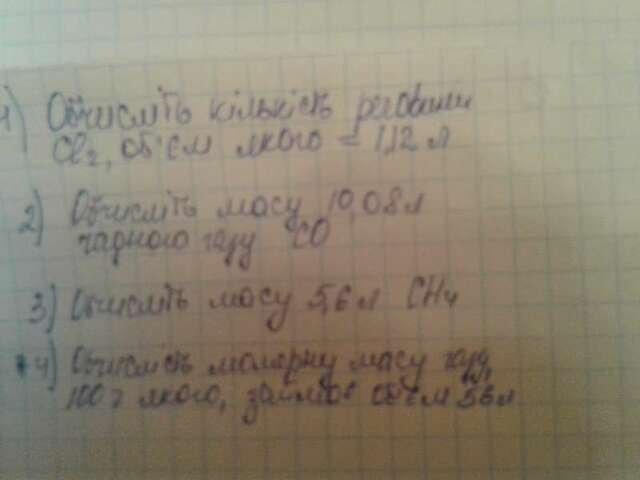 1) Обчисліть кількість речовини
Cl₂, об'єм якого = 1,12 л
2) Обчисліть масу 10,08 л
чадного газу CO
3) Обчисліть масу 5,6 л CH₄
4) Обчисліть молярну масу газу
100 г якого, займає об'єм 56 л